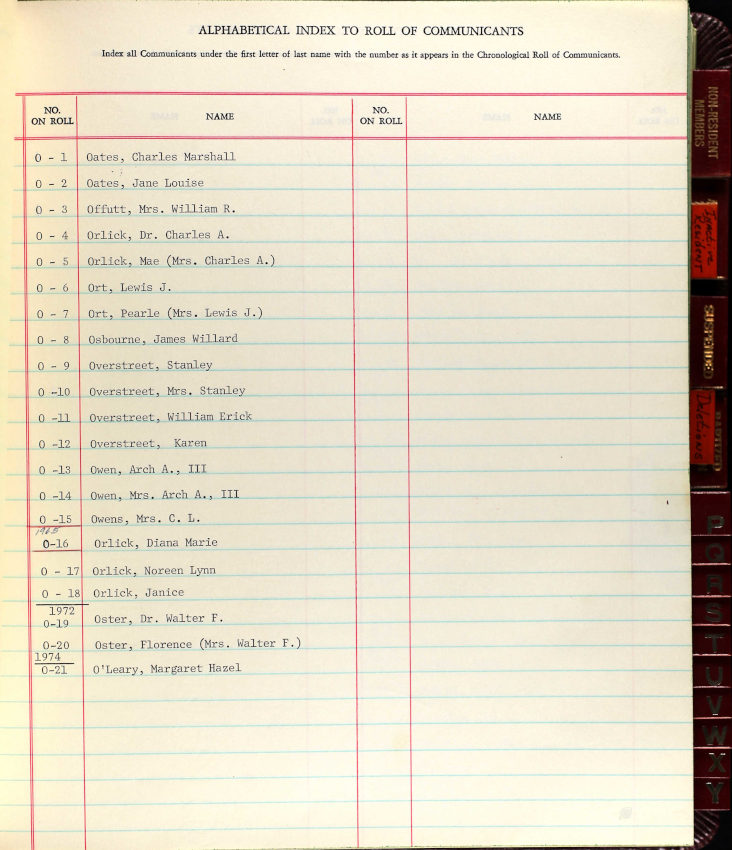 ALPHABETICAL INDEX TO ROLL OF COMMUNICANTS
Index all Communicants under the first letter of last name with the number as it appears in the Chronological Roll of Communicants.
NO. ON ROLL NAME NO. ON ROLL NAME
O - 1 Oates, Charles Marshall
O - 2 Oates, Jane Louise
O - 3 Offutt, Mrs. William R.
O - 4 Orlick, Dr. Charles A.
O - 5 Orlick, Mae (Mrs. Charles A.)
O - 6 Ort, Lewis J.
O - 7 Ort, Pearle (Mrs. Lewis J.)
O - 8 Osbourne, James Willard
O - 9 Overstreet, Stanley
O -10 Overstreet, Mrs. Stanley
O -11 Overstreet, William Erick
O -12 Overstreet, Karen
O -13 Owen, Arch A., III
O -14 Owen, Mrs. Arch A., III
O -15 Owens, Mrs. C. L.
1965
O-16 Orlick, Diana Marie
O - 17 Orlick, Noreen Lynn
O - 18 Orlick, Janice
1972
O-19 Oster, Dr. Walter F.
O-20 Oster, Florence (Mrs. Walter F.)
1974
O-21 O'Leary, Margaret Hazel
NON-RESIDENT
MEMBERS
Inactive
Resident
SUSPENDED
Deletions
P
Q
R
S
T
U
V
W
X
Y